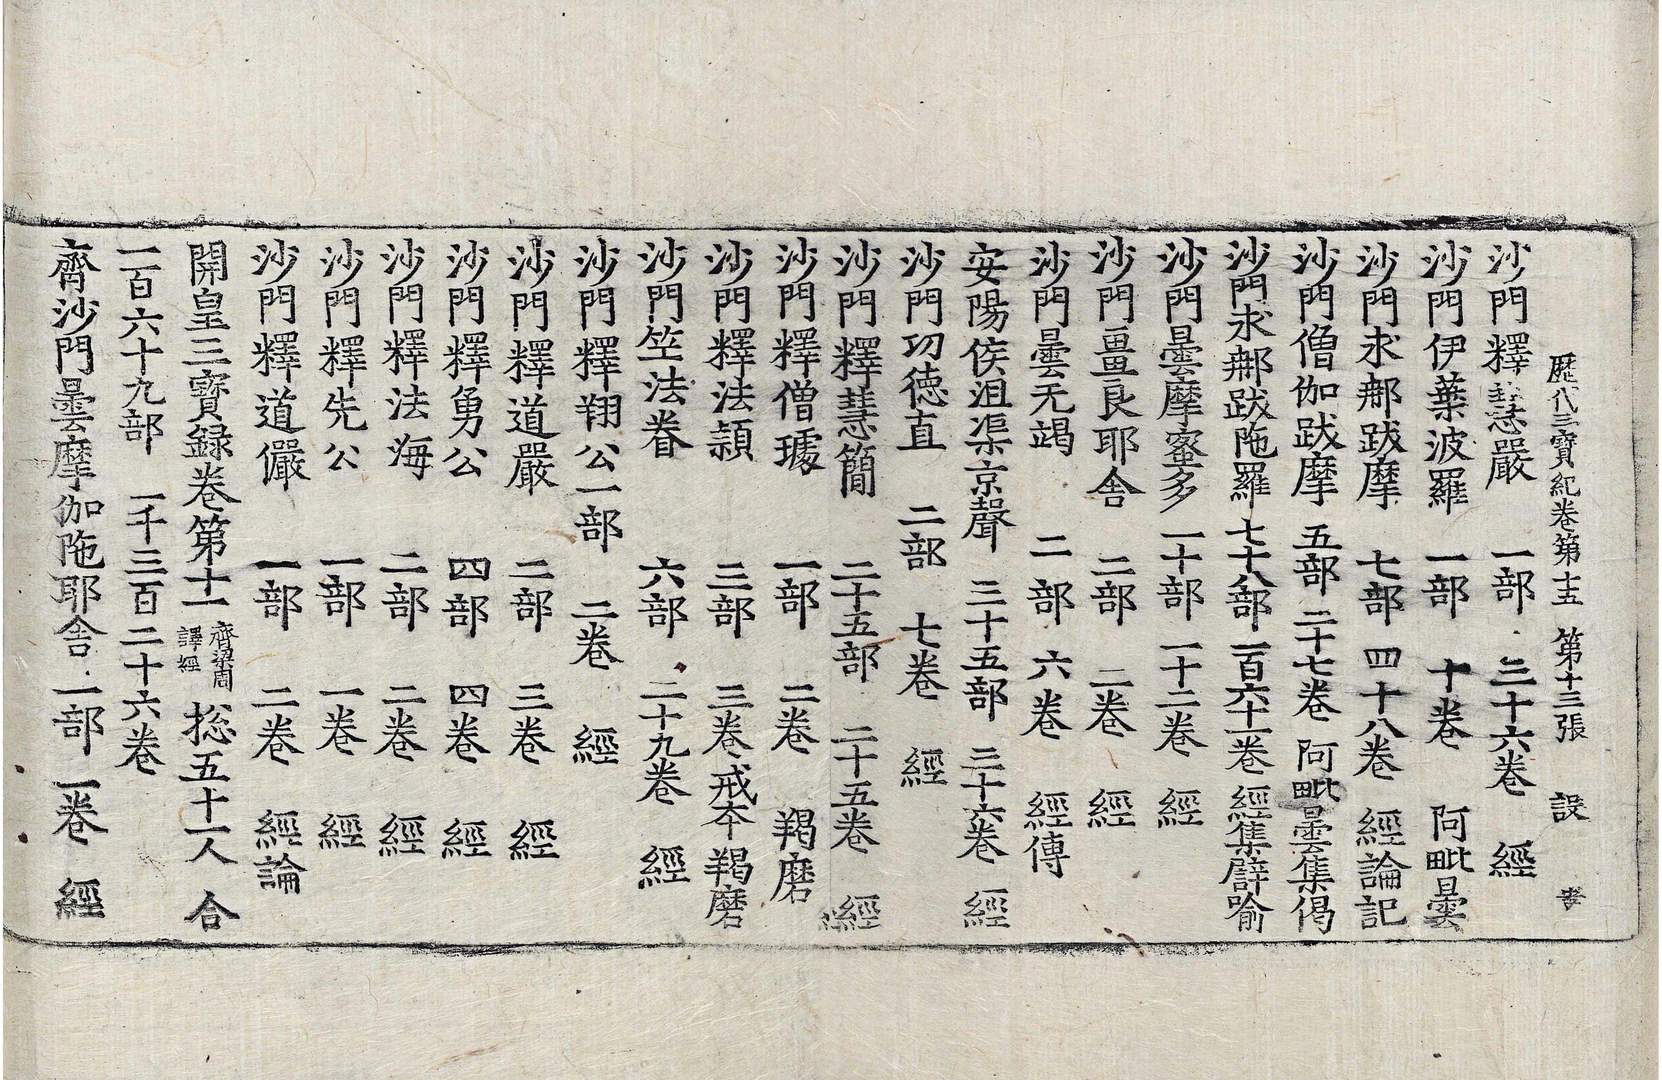 歷代三寶紀卷第十五 第十三張 設
沙門釋慧嚴 一部 三十六卷 經
沙門伊葉波羅 一部 十卷 阿毗曇
沙門求那跋摩 七部 四十八卷 經論記
沙門僧伽跋摩 五部 二十七卷 阿毗曇集偈
沙門求那跋陁羅 七十八部 一百六十一卷 經集譬喻
沙門曇摩蜜多 一十部 一十二卷 經
沙門畺良耶舍 二部 二卷 經
沙門曇无竭 二部 六卷 經傳
安陽侯沮渠京聲 三十五部 三十六卷 經
沙門功德直 二部 七卷 經
沙門釋慧簡 二十五部 二十五卷 經
沙門釋僧璩 一部 二卷 羯磨
沙門釋法穎 三部 三卷 戒本羯磨
沙門竺法眷 六部 二十九卷 經
沙門釋翔公一部 二卷 經
沙門釋道嚴 二部 三卷 經
沙門釋勇公 四部 四卷 經
沙門釋法海 二部 二卷 經
沙門釋先公 一部 一卷 經
沙門釋道儼 一部 二卷 經論
開皇三寶録卷第十一 齊梁周譯經 捴五十一人 合
一百六十九部 一千三百二十六卷
齊沙門曇摩伽陁耶舍 一部 一卷 經